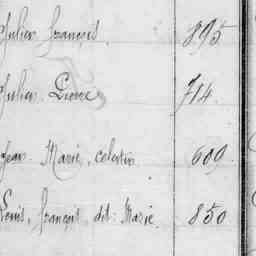 Julien François. 895
Julien Pierre 714.
Jean Marie, celestin 609.
Louis, françois, dit: Marie. 850